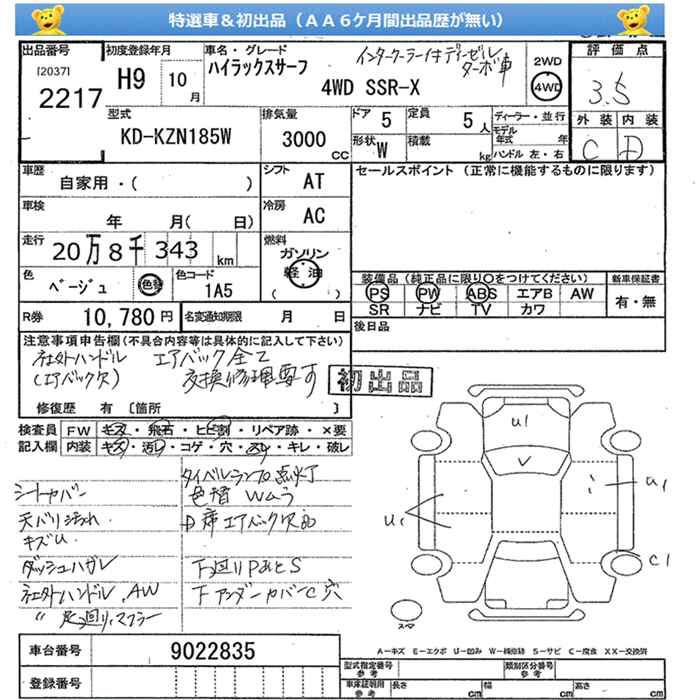 特選車＆初出品（ＡＡ６ケ月間出品歴が無い）
出品番号 初度登録年月 車名・グレード 評価点
[2037] 2217
H9 10月
ハイラックスサーフ インタークーラー付ディーゼルターボ車
4WD SSR-X
2WD 4WD
3.5
外装 内装
C D
型式 排気量 ドア 定員 ディーラー・並行
KD-KZN185W 3000 CC 5 5人 モデル年式 年
形状 W 積載 kg ハンドル 左・右
車歴 シフト セールスポイント (正常に機能するものに限ります)
自家用・( ) AT
車検 冷房
年 月( 日) AC
走行 燃料
20万8千343 km ガソリン
軽油
( )
色 色コード
ベージュ 色替 1A5
装備品(純正品に限り○をつけてください) 新車保証書
PS PW ABS エアB AW 有・無
SR ナビ TV カワ
R券 10,780円 名変通知期限 月 日 後日品
注意事項申告欄(不具合内容等は具体的に記入して下さい)
社外ハンドル エアバック全て
(エアバック欠) 交換修理要す
初出品
修復歴 有 〔箇所 〕
検査員 FW キズ・飛石・ヒビ割・リペア跡・×要
記入欄 内装 キズ・汚れ・コゲ・穴・スレ・キレ・破レ
タイベルランプ点灯
シートカバー 色替 Wムラ
天バリ汚れ D席エアバック欠品
キズU
ダッシュハガレ 下廻りPあとS
社外ハンドル、AW 下アンダーカバーC穴
〃 足廻り、マフラー
U1
U1
U1
C1
スマ
A－キズ E－エクボ U－凹み W－補修跡 S－サビ C－腐食 XX－交換済
車台番号 9022835
登録番号
型式指定番号 参考 類別区分番号 参考
車庫証明用 参考 長さ cm 幅 cm 高さ cm